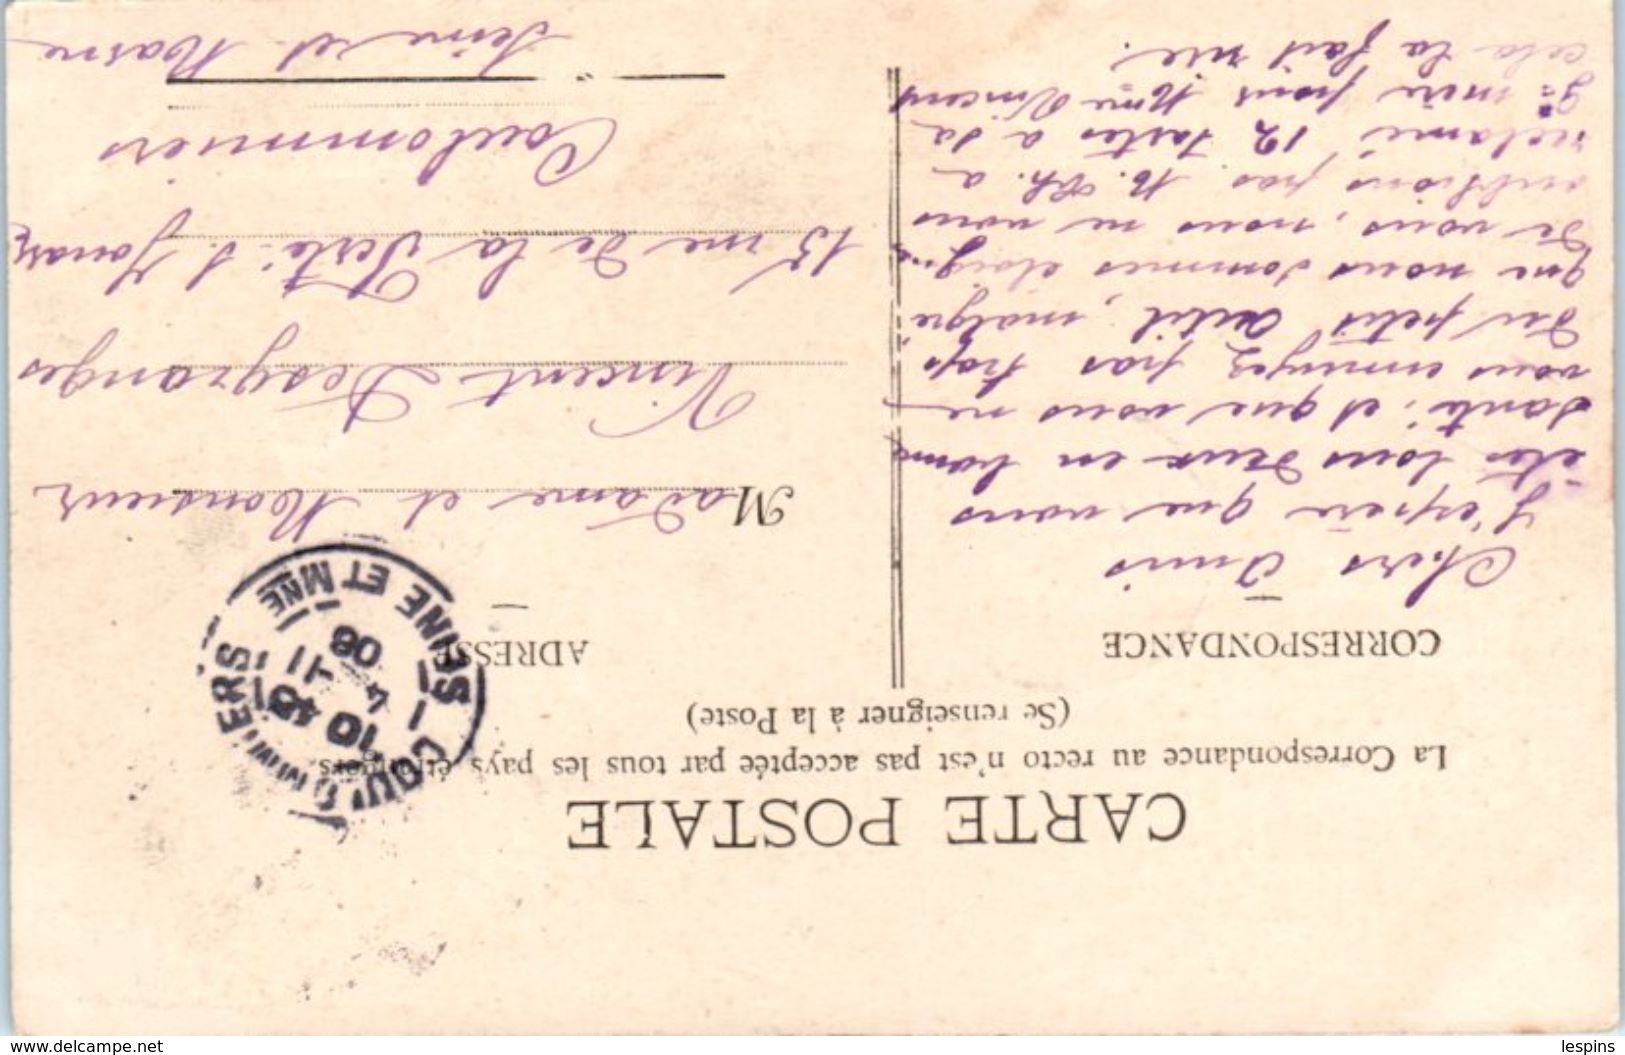 CARTE POSTALE
La Correspondance au recto n'est pas acceptée par tous les pays étrangers
(Se renseigner à la Poste)
CORRESPONDANCE
Chers Amis
J'espère que vous
êtes tous deux en bonne
santé et que vous ne
vous ennuyez pas trop
du petit Autil, malgré
que nous sommes éloignés
de vous, nous ne vous
oublions pas. M. Ch. a
réclamé 12 cartes a sa
gd mère pour Mme Vincent
cela la fait rire.
ADRESSE
Madame et Monsieur
Vincent Desgranges
13 rue de la Ferté s. Jouarre
Coulommiers
Seine et Marne
COULOMMIERS
10 45
4 - 11
06
SEINE ET MNE
www.delcampe.net
lespins